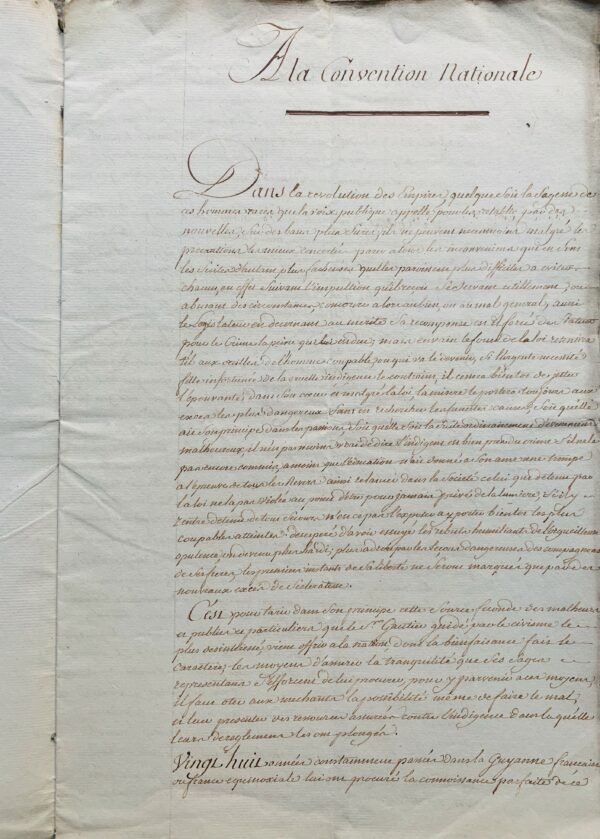 A la Convention Nationale
Dans la revolution des Empires, quelque soit la Sagesse de
ces hommes rares, que la voix publique appelle pour les retablir
nouvelles, Sur des bases plus malgré les
precautions les mieux concertées, parer alors les inconveniens qui en Sont
les Suites d'autant plus facheuses qu'elles paroissent plus difficiles a eviter
chacun en effet Suivant l'impulsion qu'il reçoit Se Servant utillement, ou
abusant des circonstances, concoure alors au bien, ou au mal general; aussi
le Legislateur en decernant au merite Sa recompense est il forcé de
pour le Crime la peine qui lui est due; mais envain le foudre de la loi retentira
t'il aux oreilles de l'homme coupable, ou qui va le devenir, Si l'urgente necessité
fille infortunée de la cruelle indigence le contraint, il cessera bientot de jetter
l'épouvante dans Son coeur et malgré la loi, la misere le portera toujours aux
excès les plus dangereux Sans en rechercher les funestes causes, Soit qu'elle
ait Son principe dans les passions, Soit qu'elle Soit la Suite
malheureux il n'est pas moins vrai de dire l'indigent est bien près du crime S'il ne l'a
pas encore commis, a moins que l'éducation n'ait donné a Son ame une trempe
a l'épreuve de tous les Revers ainsi relancé dans la Société celui que detenu par
la loi ne l'a pas violée au point d'être pour jamais privé de la lumiere; S'il y
rentre dénué de tout Secours n'en est ce pas l'exposer a y porter bientot les plus
coupables atteintes desesperé d'avoir essuyé les rebuts humiliants de l'orgueilleuse
opulence, devenu plus hardi, plus adroit par les lecons dangereuses des compagnons
de Ses fers, les premiers instants de Sa liberté ne Seront marqués que par de
nouveaux excès de Scélératesse.
C'est pour tarir dans Son principe cette Source feconde des malheurs
et publics et particuliers que le Sr. Gautier guidé par le civisme le
plus desinteressé, vient offrir a la nation, dont la bienfaisance fait le
caractere, les moyens d'assurer la tranquilité que Ses Sages
representans S'efforcent de lui procurer, pour y parvenir a ces moyens
il faut oter aux mechants la possibilité même de faire le mal,
et leur presenter des ressources assurées contre l'indigence dans laquelle
leurs dereglemens les ont plongés.
Vingt huit années constamment passées dans la Guyanne francaise
ou france equinoxiale lui ont procuré la connoissance parfaite de ce